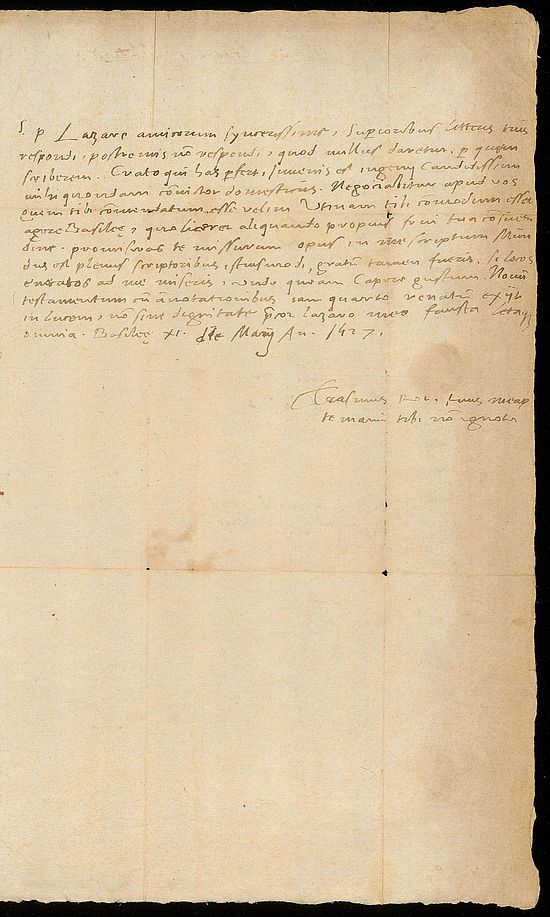 S. p. Lazare amicorum syncerissime, Superioribus litteris tuis
respondi, postremis nō respondi, quod nullus daretur, p quem
scriberem. Crato qui has pfert, Juvenis est ingenij Candidissimi
mihi quondam cōvictor domesticus. Negociabitur apud vos
quem tibi cōmendatum esse velim Utinam tibi cōmodum esset
agere Basileę, quo liceret aliquando propius frui tua cōsuetu
dine. promiseras te missurum opus in me scriptum Mun
dus est plenus scriptoribus istiusmodi, gratū tamen fueris, si locos
ad me miseris, unde queam Capere gustum. Novū
testamentum cū anotationibus iam quarto renatū exijt
in lucem, nō sine dignitate pcor lazaro meo fausta letaq
omnia. Basileę XI. die Maij An. 1527.
Erasmus Rot. tuus meap
te manu tibi nō ignota